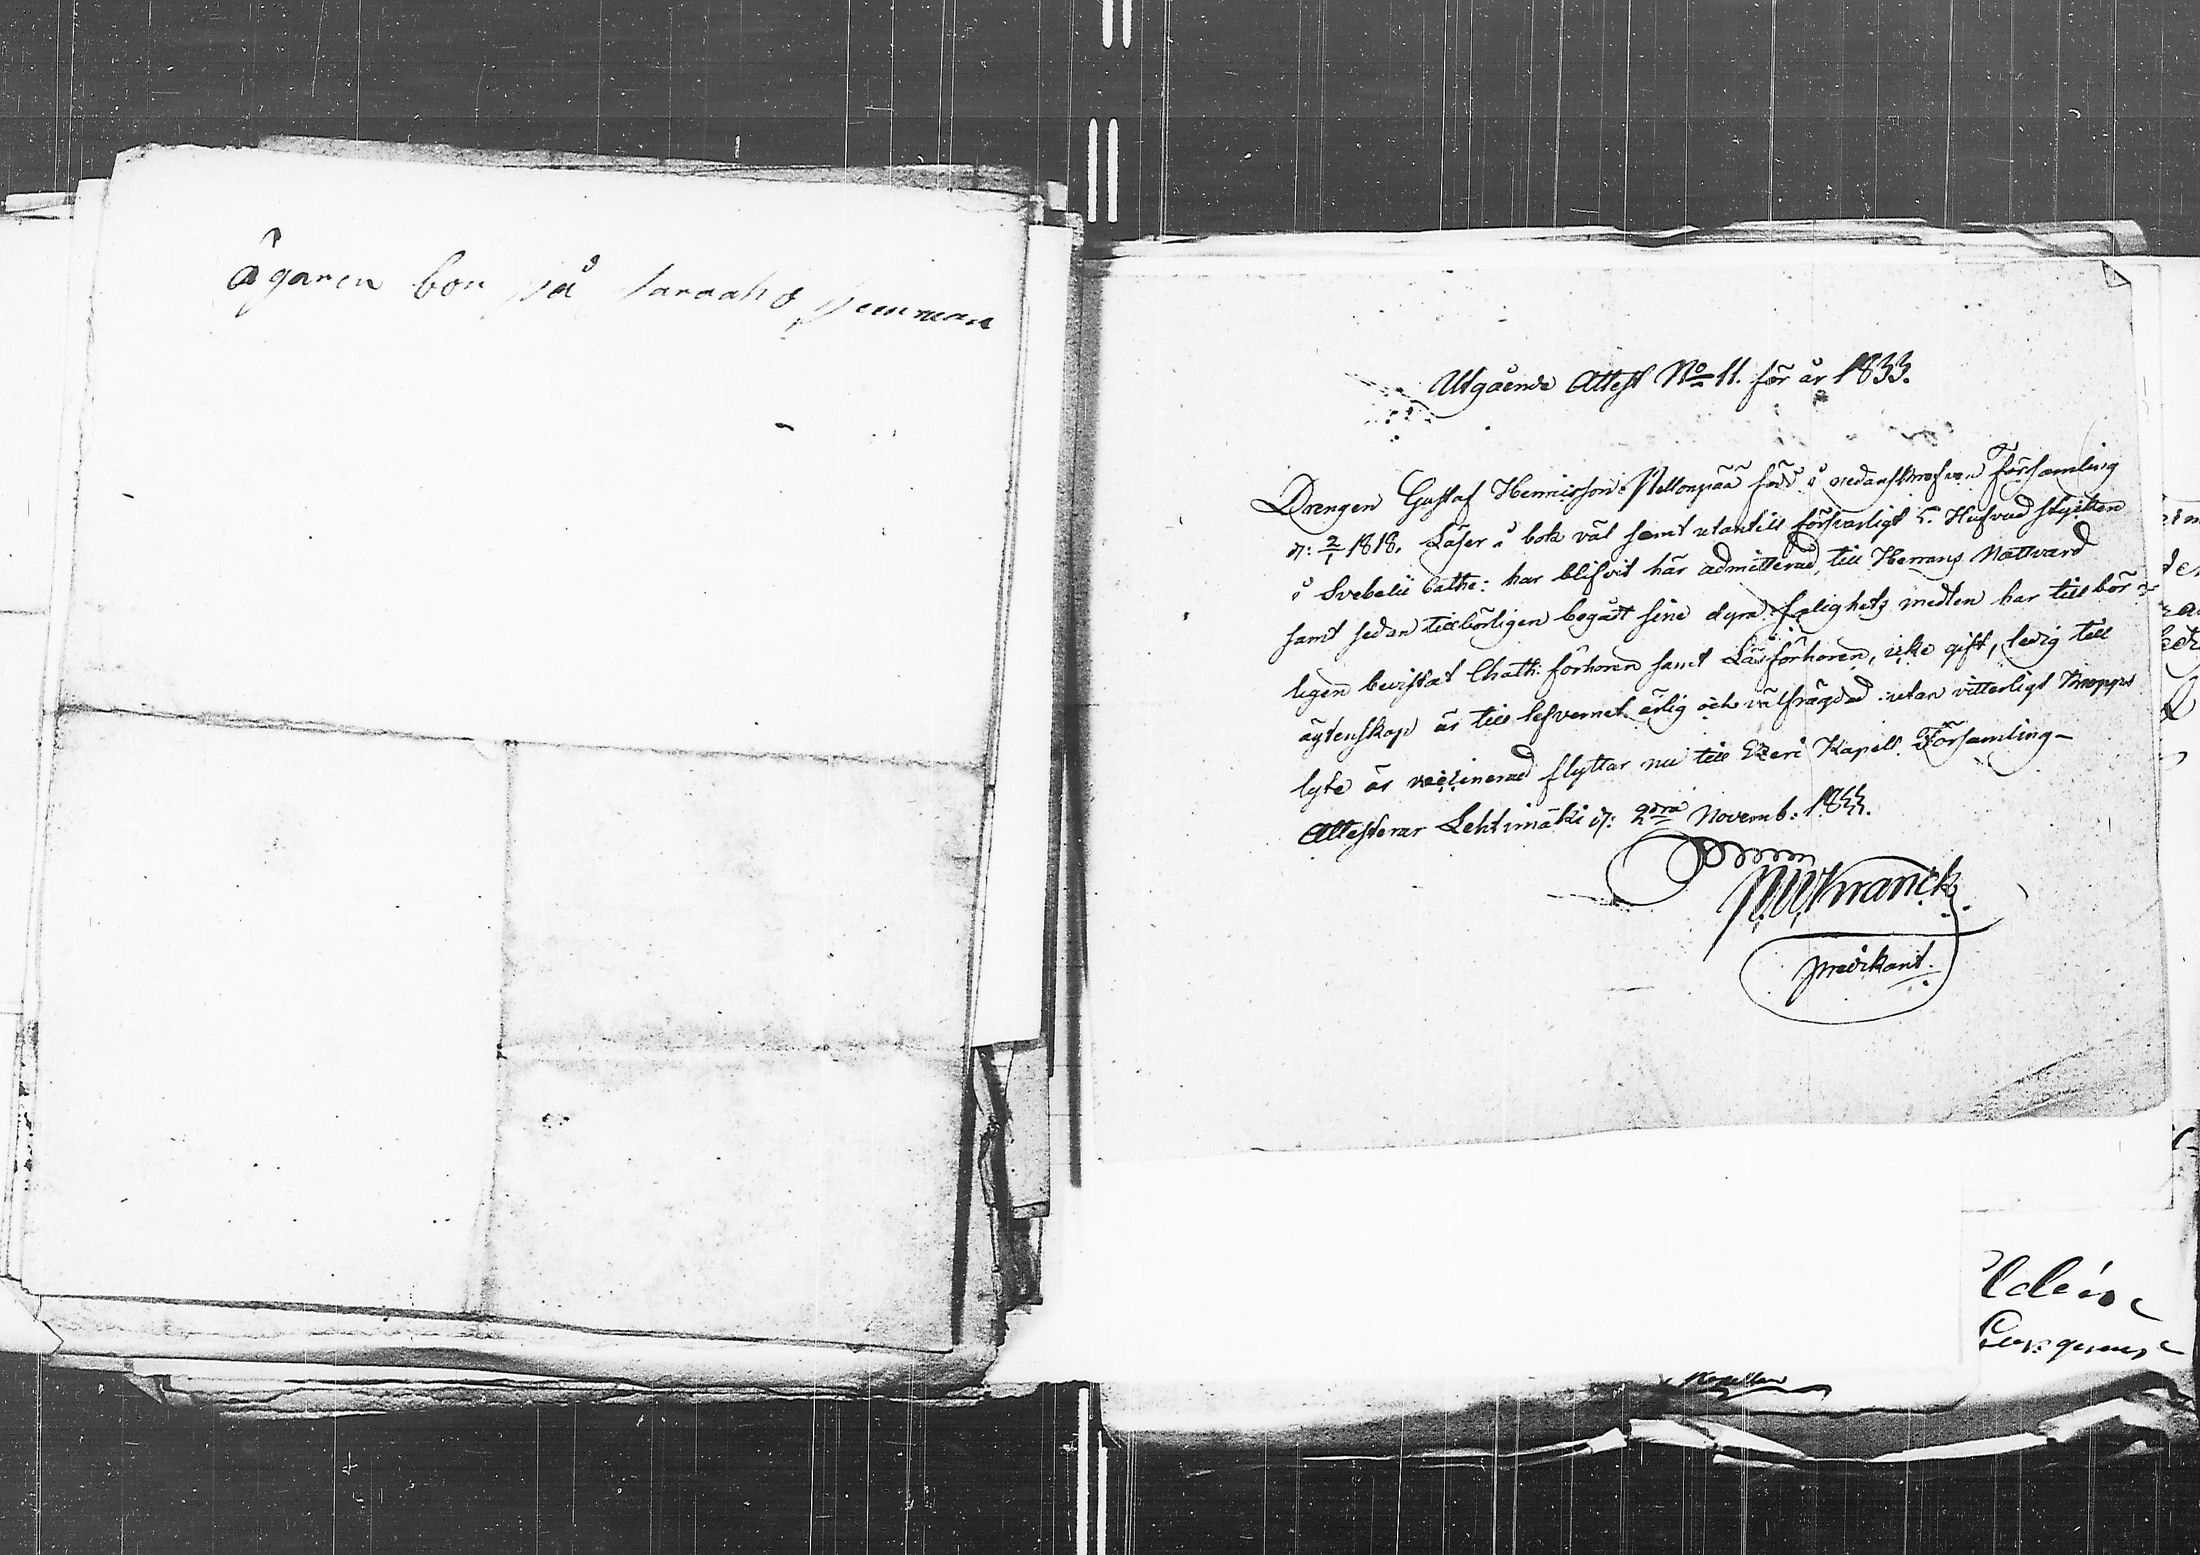 Ägaren bor på
Utgående Attest No 11. för år 1833.
Drengen Gustaf Henricsson Pellonpää född i nedanskrefven Församling
d: 2/1 1818. Läser i bok väl samt utantill försvarligt 5. Hufvud stycken
i Svebelii Cathe: har blifvit här admitterad till Herrans Nattvard
samt sedan tillbörligen begått sine dyra salighets medlen har tillbör-
ligen bevistat Chath: förhören samt Läsförhören, icke gift, ledig till
ägtenskap är till lefvernet ärlig och välfrägdad utan vitterligt kropps
lyte är vaccinerad flyttar nu till Etzeri Kapell Församling-
Attesterar Lehtimäki d: 2dra Novemb: 1833.
Kranck
predikant.